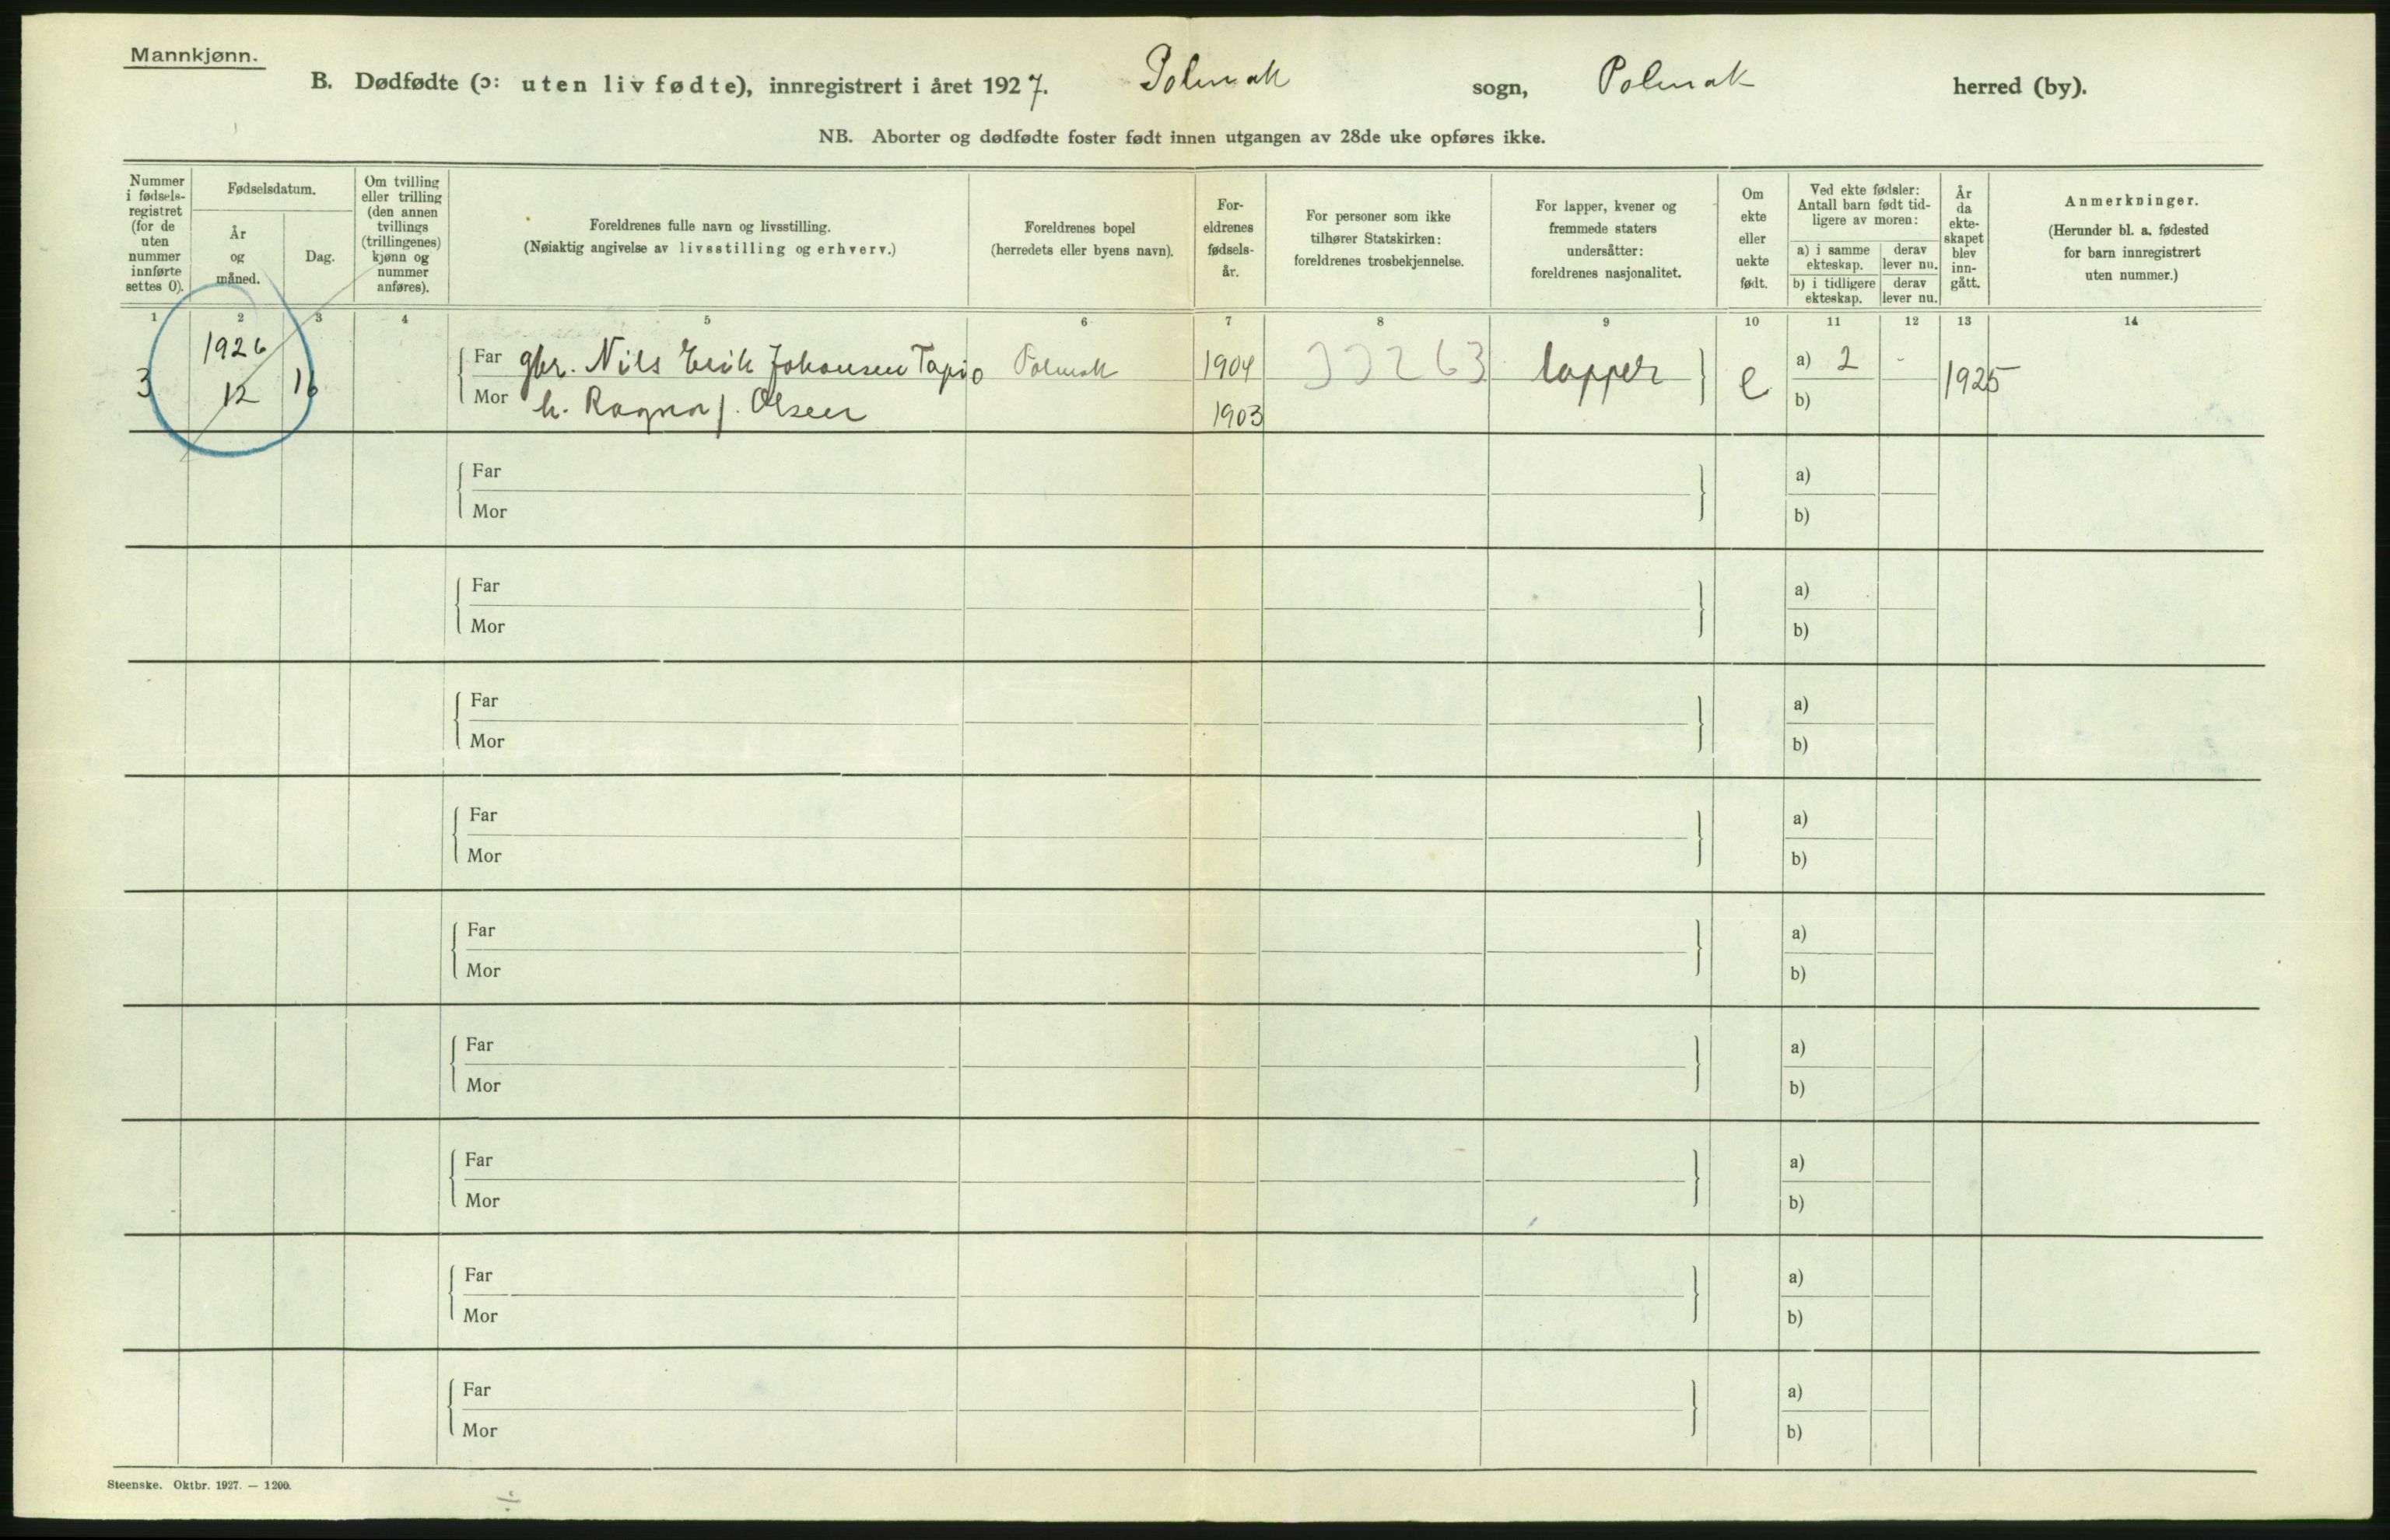 Mannkjønn.
B. Dødfødte (ɔ: uten liv fødte), innregistrert i året 1927. Polmak sogn, Polmak herred (by).
NB. Aborter og dødfødte foster født innen utgangen av 28de uke opføres ikke.
Nummer i fødsels- registret (for de uten nummer innførte settes 0).
Fødselsdatum.
År og måned.
Dag.
Om tvilling eller trilling (den annen tvillings (trillingenes) kjønn og nummer anføres).
Foreldrenes fulle navn og livsstilling.
(Nøiaktig angivelse av livsstilling og erhverv.)
Foreldrenes bopel
(herredets eller byens navn).
For- eldrenes fødsels- år.
For personer som ikke tilhører Statskirken: foreldrenes trosbekjennelse.
For lapper, kvener og fremmede staters undersåtter: foreldrenes nasjonalitet.
Om ekte eller uekte født.
Ved ekte fødsler: Antall barn født tid- ligere av moren:
a) i samme ekteskap.
derav lever nu.
b) i tidligere ekteskap.
derav lever nu.
År da ekte- skapet blev inn- gått.
Anmerkninger.
(Herunder bl. a. fødested for barn innregistrert uten nummer.)
1 2 3 4 5 6 7 8 9 10 11 12 13 14
3 1926 12 16
Far gbr. Nils Erik Johansen Tapio Polmak 1904 33263 lapper e a) 2 - 1925
Mor h. Ragna J. Olsen 1903 b)
Far a)
Mor b)
Far a)
Mor b)
Far a)
Mor b)
Far a)
Mor b)
Far a)
Mor b)
Far a)
Mor b)
Far a)
Mor b)
Far a)
Mor b)
Far a)
Mor b)
Steenske. Oktbr. 1927. — 1200.
÷